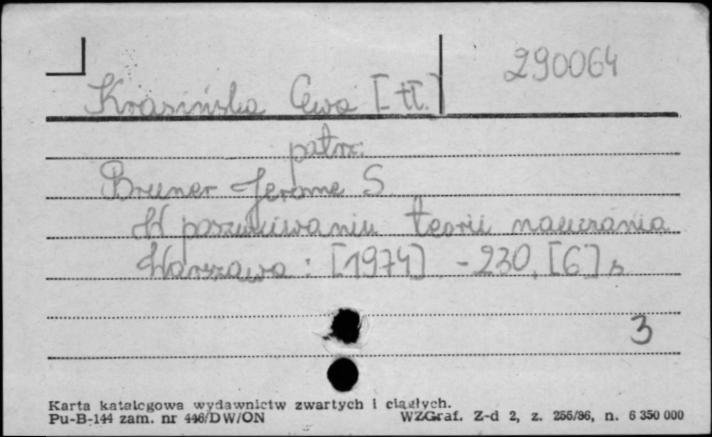 290064
Krasińska Ewa [tł.]
patrz:
Bruner Jerome S.
W poszukiwaniu teorii nauczania
Warszawa : [1974]. - 230, [6] s
3
Karta katalogowa wydawnictw zwartych i ciągłych.
Pu-B-144 zam. nr 446/DW/ON WZGraf. Z-d 2, z. 256/86, n. 6 350 000